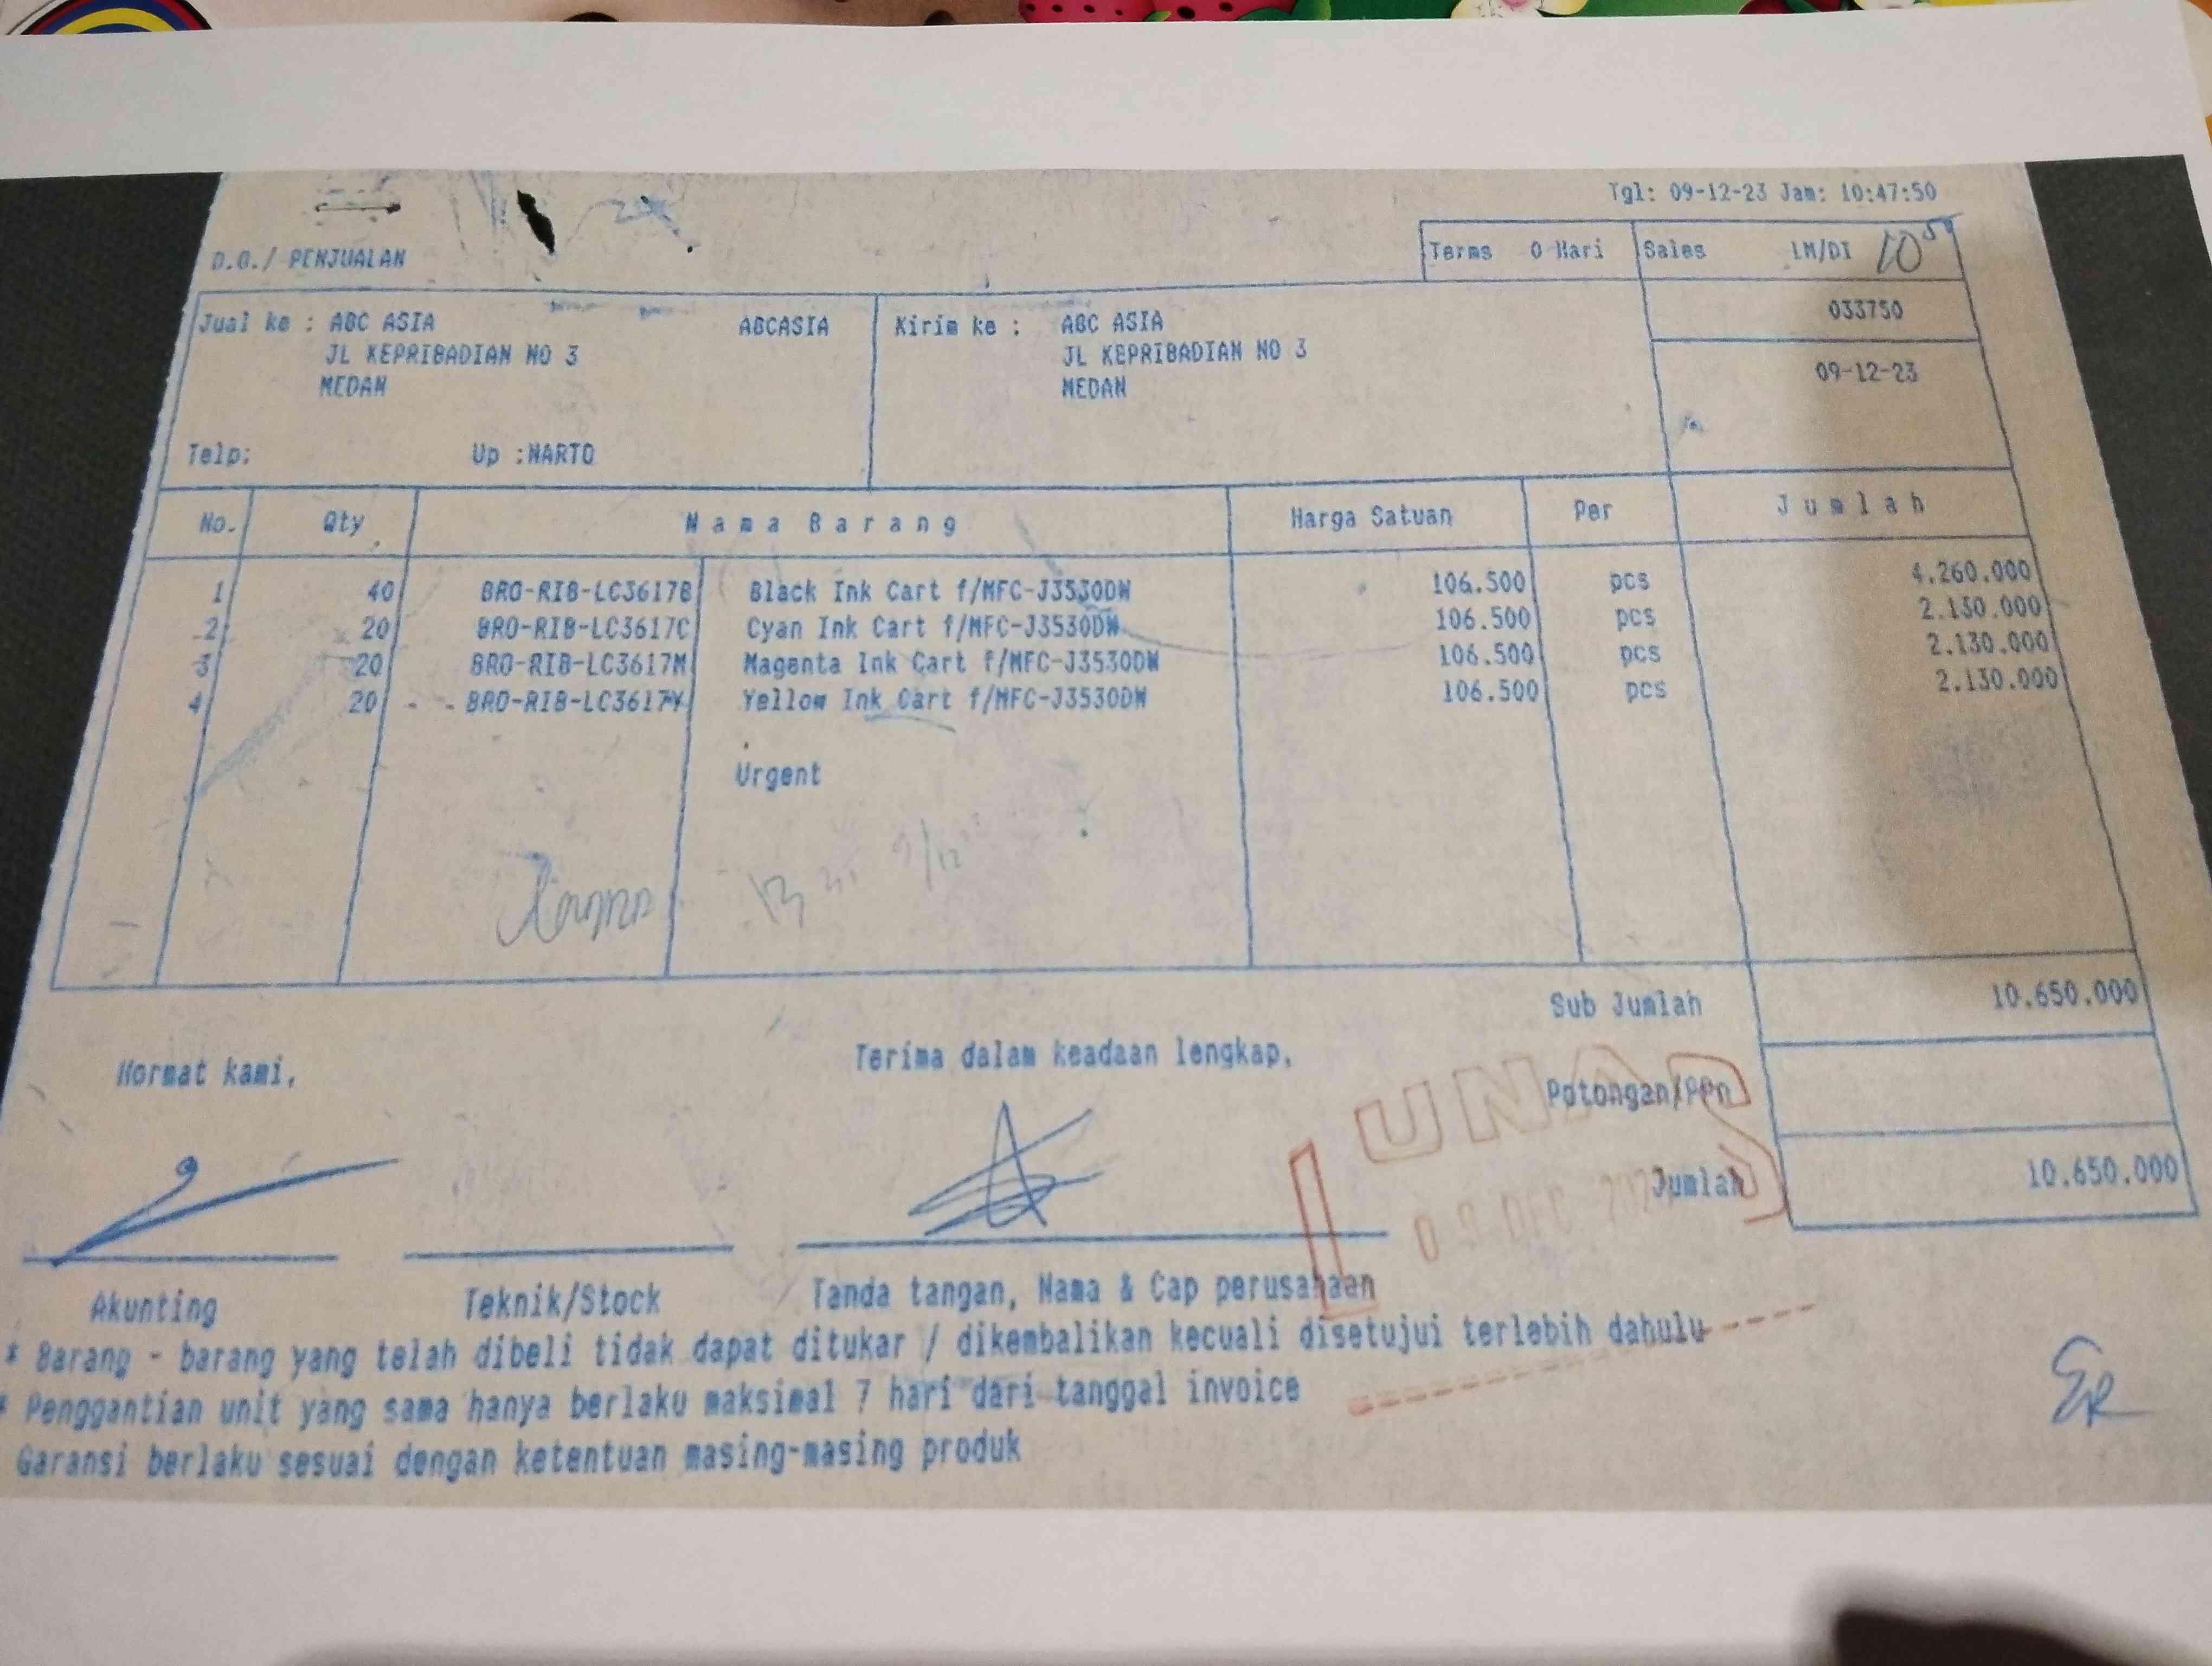 Tgl: 09-12-23 Jam: 10:47:50
D.O./ PENJUALAN
Terms 0 Hari Sales LM/DI 10 50
Jual ke : ABC ASIA ABCASIA Kirim ke : ABC ASIA 033750
JL KEPRIBADIAN NO 3 JL KEPRIBADIAN NO 3
MEDAN MEDAN 09-12-23
Telp: Up :NARTO
No. Qty Nama Barang Harga Satuan Per Jumlah
1 40 BRO-RIB-LC3617B Black Ink Cart f/MFC-J3530DW 106.500 pcs 4.260.000
2 20 BRO-RIB-LC3617C Cyan Ink Cart f/MFC-J3530DW 106.500 pcs 2.130.000
3 20 BRO-RIB-LC3617M Magenta Ink Cart f/MFC-J3530DW 106.500 pcs 2.130.000
4 20 BRO-RIB-LC3617Y Yellow Ink Cart f/MFC-J3530DW 106.500 pcs 2.130.000
Urgent
Sub Jumlah 10.650.000
Hormat kami, Terima dalam keadaan lengkap,
Potongan/PPn
LUNAS
Jumlah 10.650.000
09 DEC
Akunting Teknik/Stock Tanda tangan, Nama & Cap perusahaan
* Barang - barang yang telah dibeli tidak dapat ditukar / dikembalikan kecuali disetujui terlebih dahulu
* Penggantian unit yang sama hanya berlaku maksimal 7 hari dari tanggal invoice
Garansi berlaku sesuai dengan ketentuan masing-masing produk